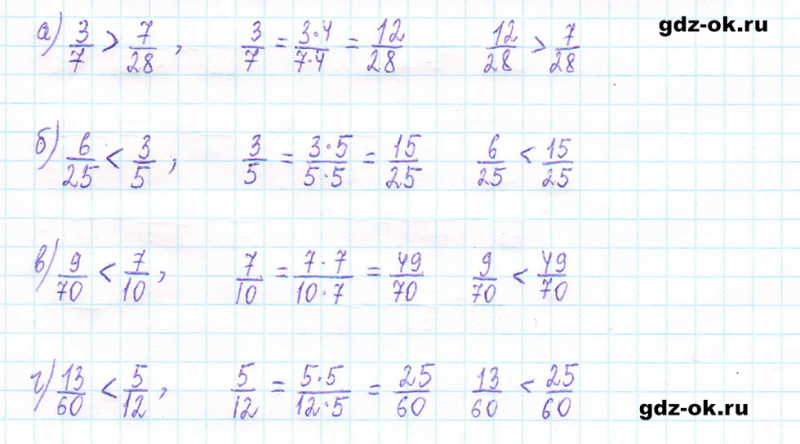 gdz-ok.ru
а) 3/7 > 7/28 , 3/7 = 3·4/7·4 = 12/28 12/28 > 7/28
б) 6/25 < 3/5 , 3/5 = 3·5/5·5 = 15/25 6/25 < 15/25
в) 9/70 < 7/10 , 7/10 = 7·7/10·7 = 49/70 9/70 < 49/70
г) 13/60 < 5/12 , 5/12 = 5·5/12·5 = 25/60 13/60 < 25/60
gdz-ok.ru